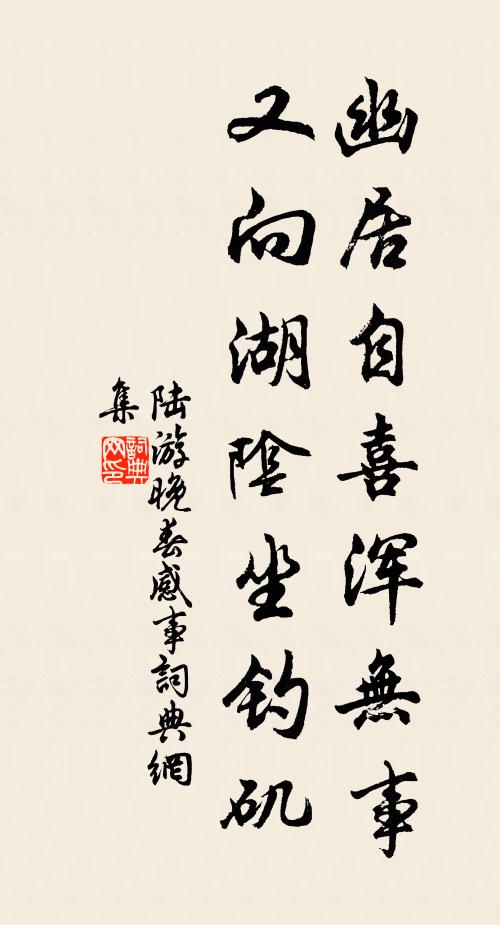 幽居自喜浑無事
又向湖陰坐钓矶
陆游晚春感事詞典網
集
詞典網印